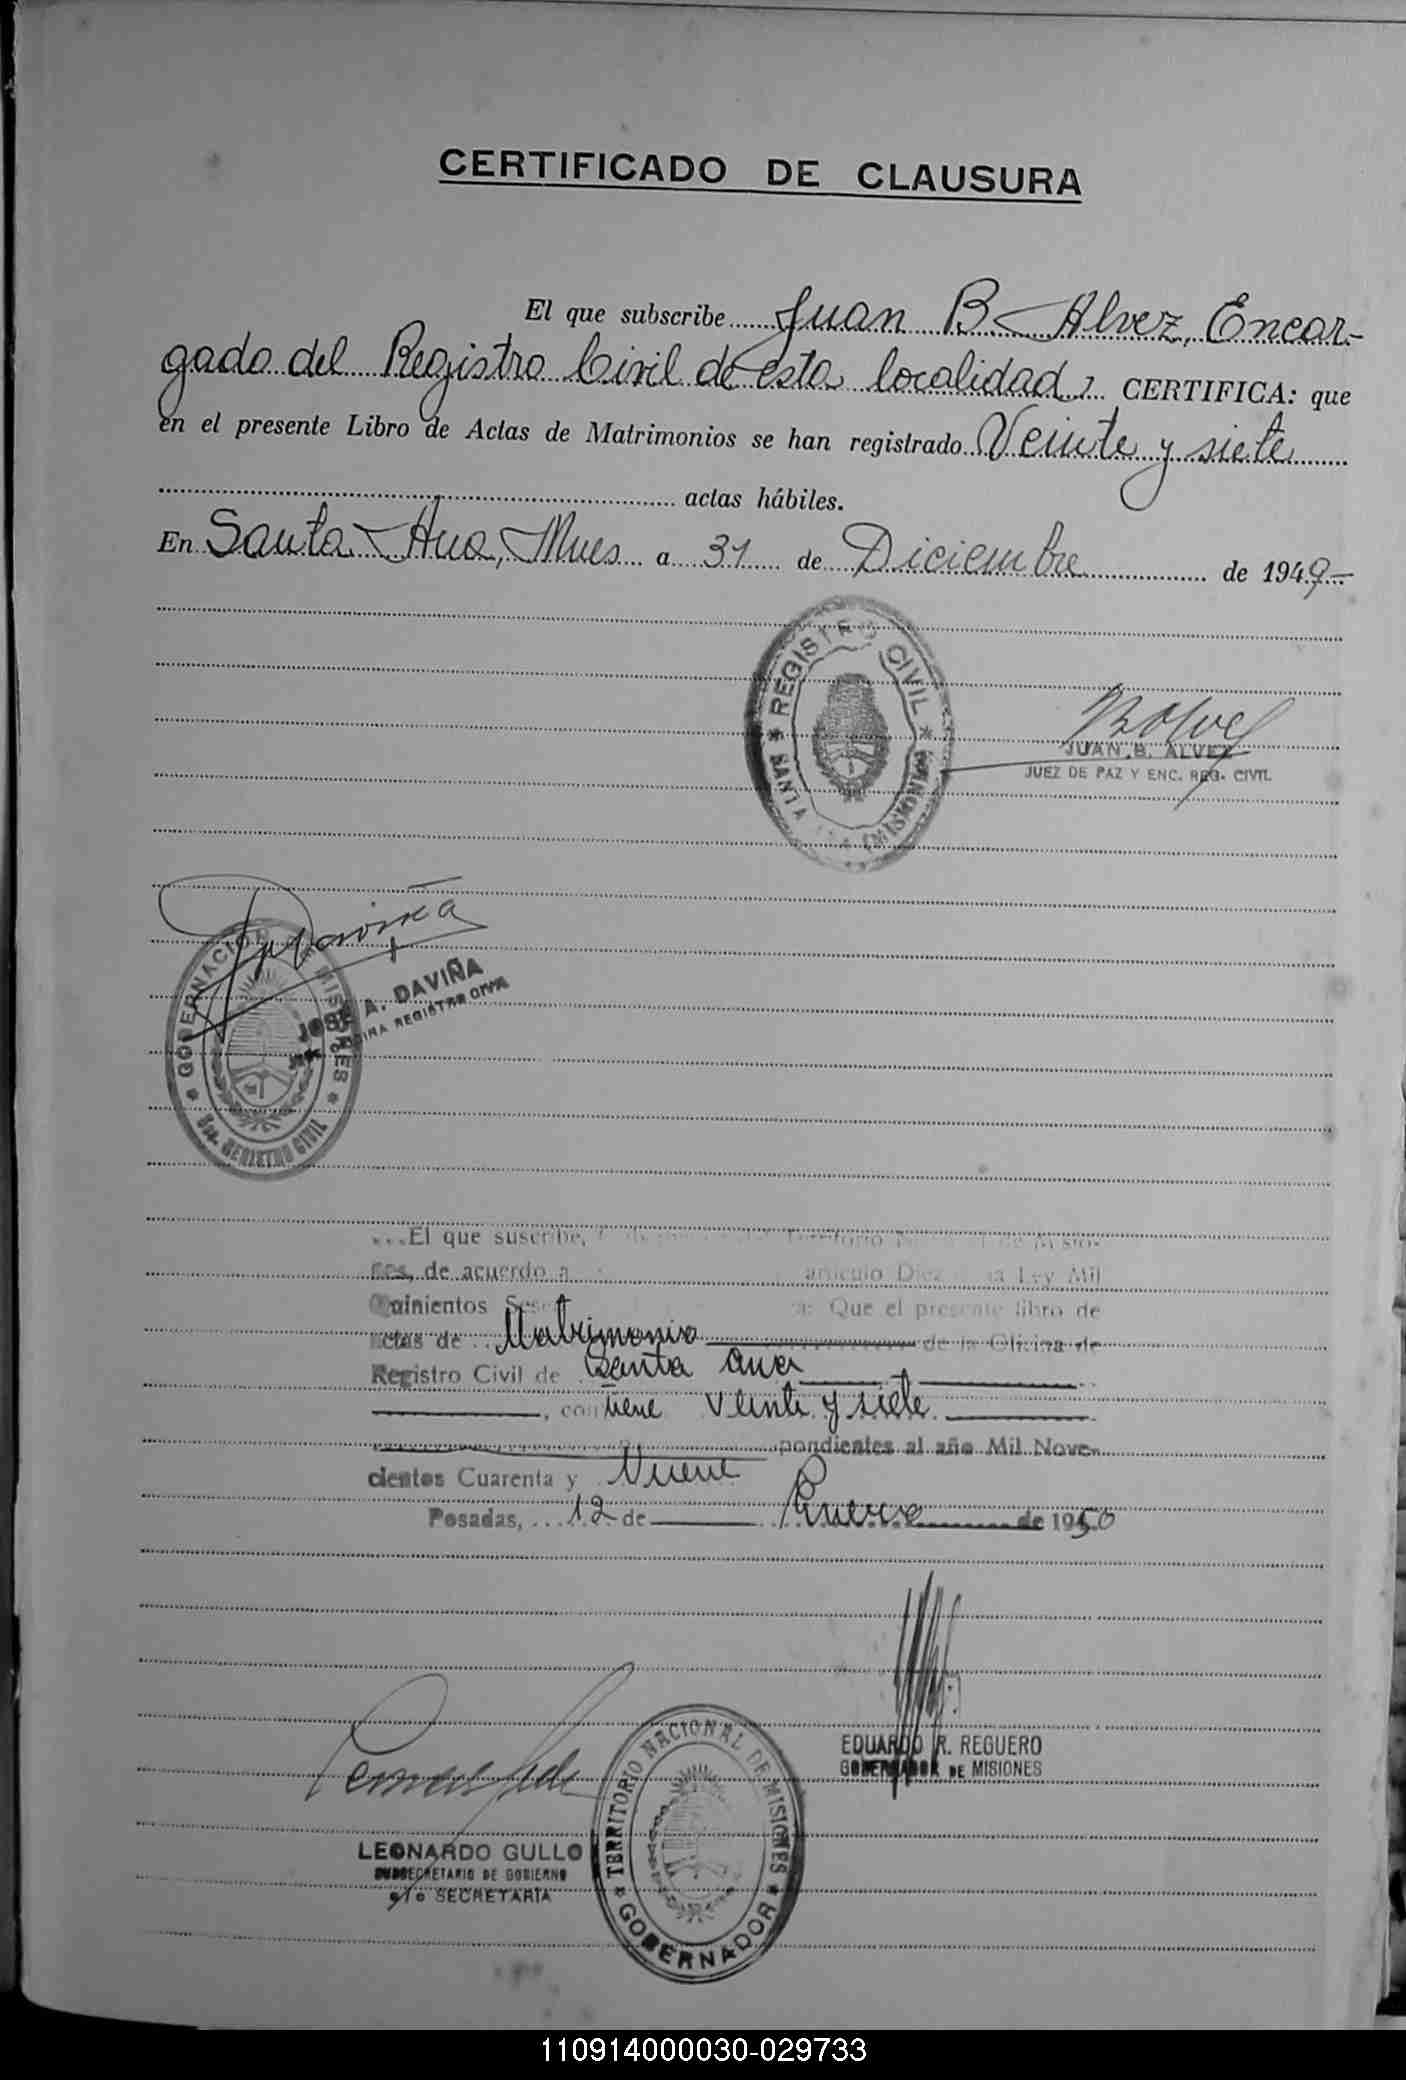 CERTIFICADO DE CLAUSURA
El que subscribe Juan B. Alvez, Encar-
gado del Registro Civil de esta localidad, CERTIFICA: que
en el presente Libro de Actas de Matrimonios se han registrado Veinte y siete
actas hábiles.
En Santa Ana, Mnes a 31 de Diciembre de 1949-
* REGISTRO CIVIL *
SANTA (MISIONES)
JUAN B. ALVEZ
JUEZ DE PAZ Y ENC. REG. CIVIL
GOBERNACION DE MISIONES
JOSÉ A. DAVIÑA
REGISTRO CIVIL
REGISTRO CIVIL
...El que suscribe, Territorio de Misio-
nes, de acuerdo a artículo Diez la Ley Mil
Quinientos Que el presente libro de
actas de Matrimonio de la Oficina de
Registro Civil de Santa Ana
, contiene Veinte y siete
pondientes al año Mil Nove-
cientos Cuarenta y Nueve
Posadas, 12 de Enero de 1950
EDUARDO R. REGUERO
GOBERNADOR DE MISIONES
LEONARDO GULLO
SUBSECRETARIO DE GOBIERNO
SECRETARIA
* TERRITORIO NACIONAL DE MISIONES *
GOBERNADOR
110914000030-029733